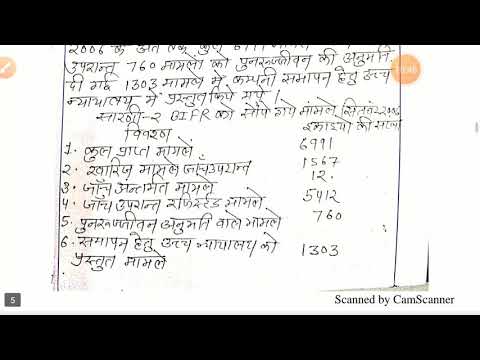 2006 के अंत तक कुल 6991 मामले
उपरान्त 760 मामलों को पुनरूज्जीवन की अनुमति
दी गई 1303 मामले में कम्पनी समापन हेतु उच्च
न्यायालय में प्रस्तुत किये गये।
सारणी-2 BIFR को सौंपे गये मामले सितंबर 2006
विवरण इकाइयों की संख्या
1. कुल प्राप्त मामले 6991
2. खारिज मामले जाँच उपरान्त 1567
3. जाँच अन्तर्गत मामले 12.
4. जाँच उपरान्त रजिस्टर्ड मामले 5412
5. पुनरूज्जीवन अनुमति वाले मामले 760
6. समापन हेतु उच्च न्यायालय को 1303
प्रस्तुत मामले
5
Scanned by CamScanner